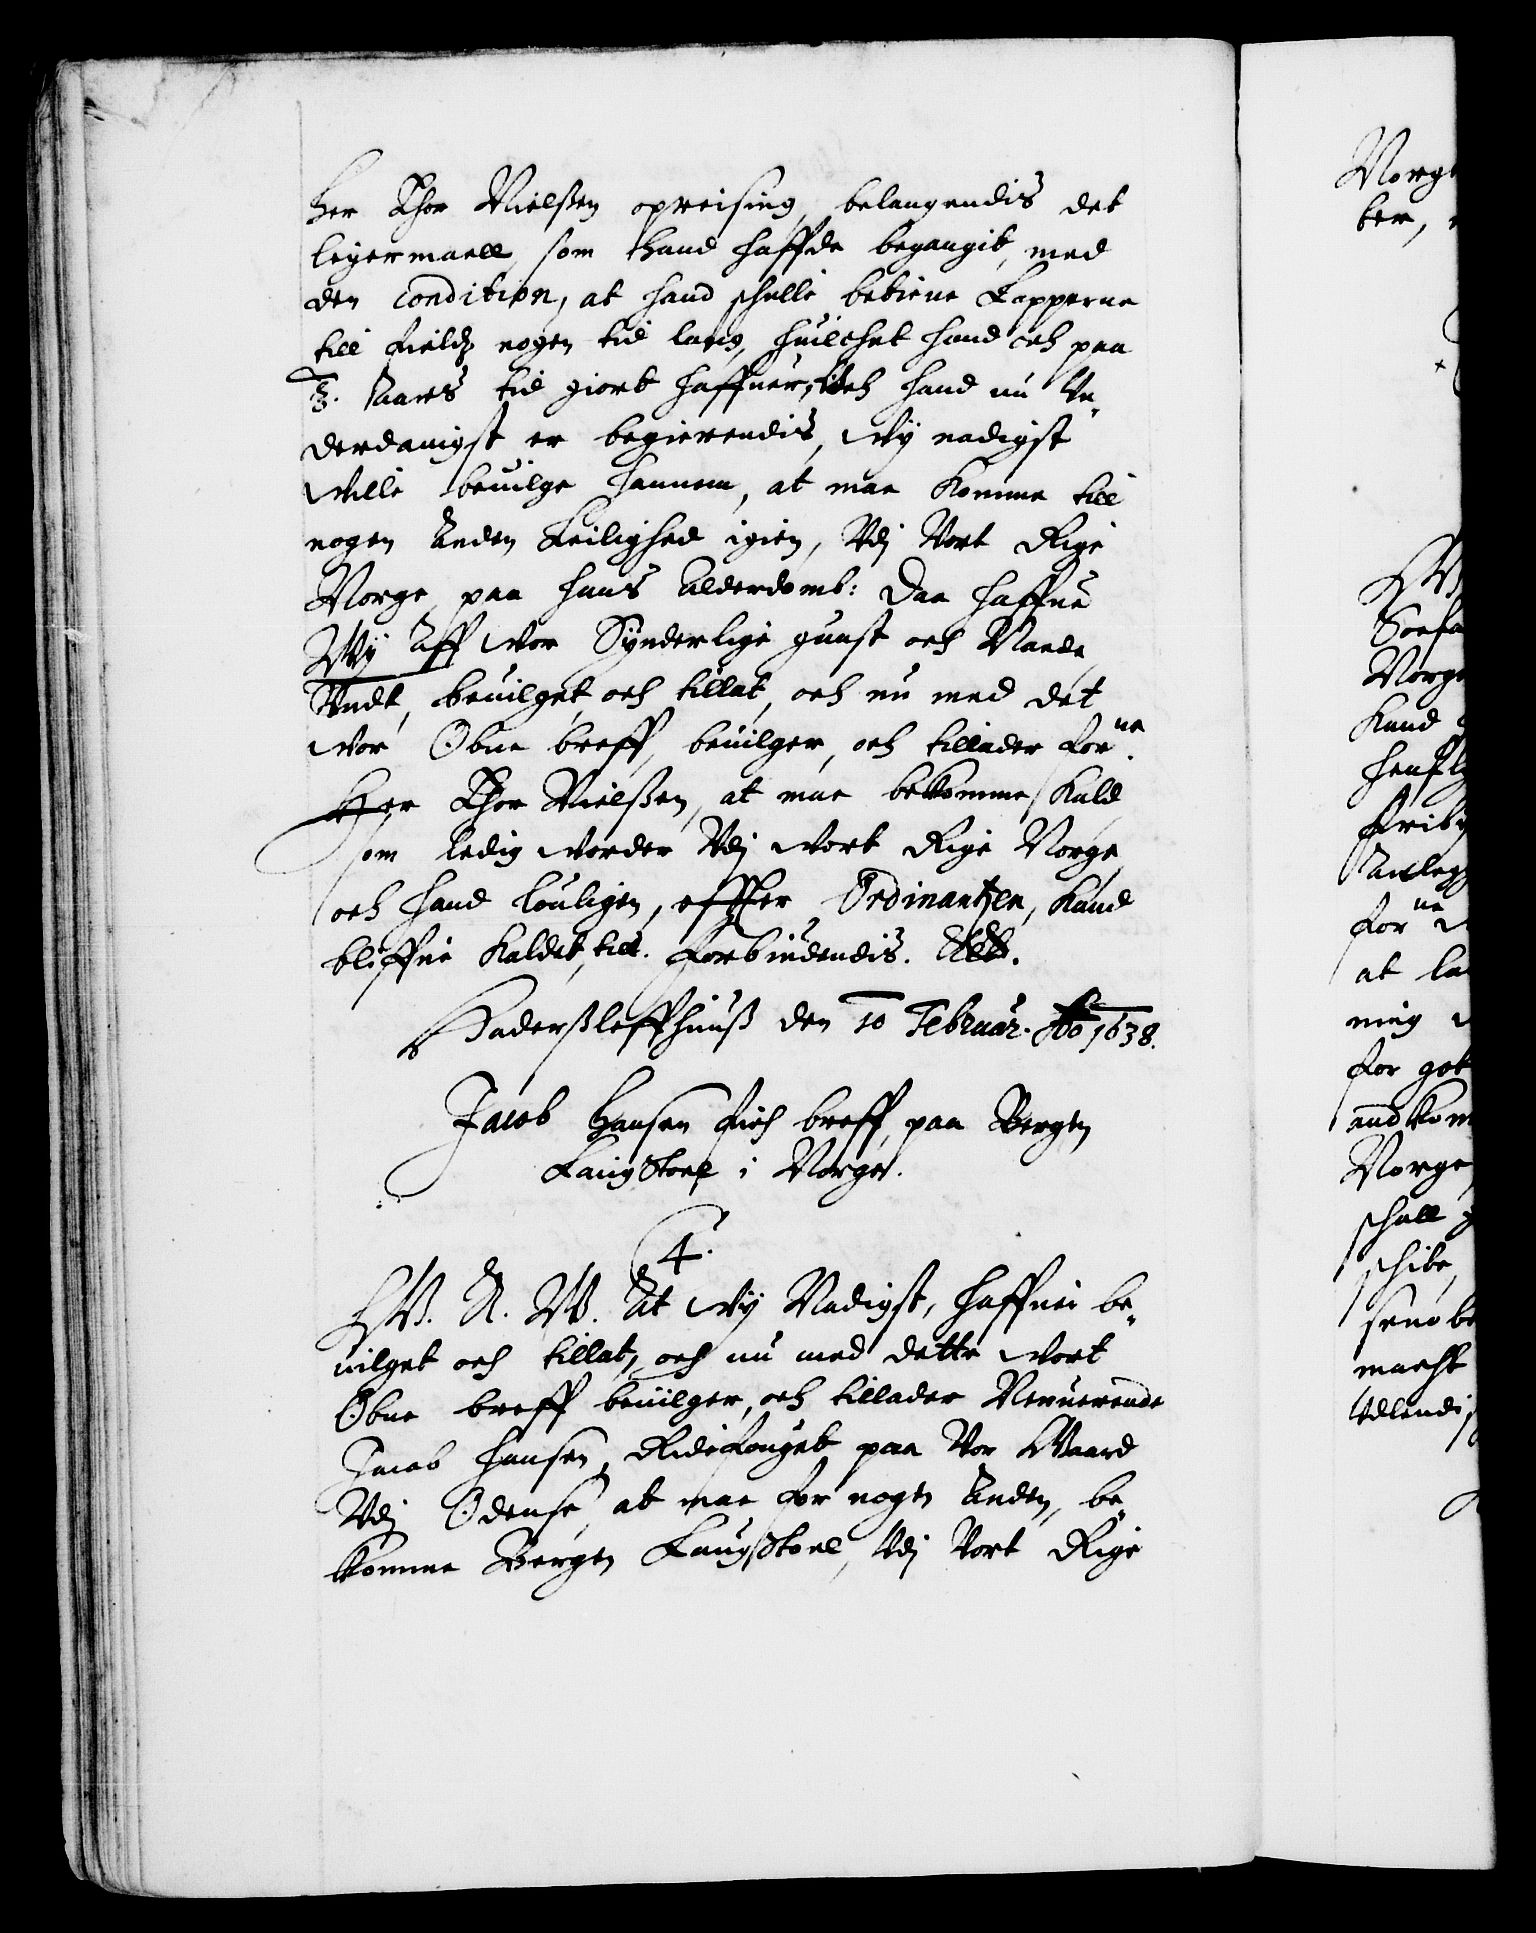 her Thor Nielßen opreising, belangendis det
leyermaell, som hand haffde begangit, med
den condition, at hand schulle betiene Lapperne
till fields nogen tid lang, huilchet hand och paa
3. aars tid giort haffuer, och hand nu Un-
derdanigst er begierendis, wy nadigst
wille beuilge hannem, at maa komme till
nogen anden Leilighed igien, Udj Vort Rige
Norge, paa hans alderdomb: Daa haffue
Wy aff wor Synderlige gunst och Naade
Undt, beuilget, och tillat, och nu med det
wor Obne breff, beuilger, och tillader for.ne
Her Thor Nielßen, at maa bekomme Kald
som ledig worder Udj wort Rige Norge,
och hand louligen, effter Ordinantzen, kand
bliffue kaldet, till. forbiudendis. Etc.
Haderßleffhuuß den 10 Februar. Ao 1638.
Jacob Hansen fich breff, paa Bergen
Laugstoel i Norge.
4.
C 4. G. A. W. At wy Nadigst, haffuer be-
uilget och tillat, och nu med dette wort
Obne breff beuilger, och tillader Neruerende
Jacob Hansen, Ridefouget paa Vor Gaard
Udj Odense, at maa for nogen anden, be-
komme Bergen Laugstoel, Udj Vort Rige
Norge
ter,
Norge
Kand
for.ne
at
ning
for got
Norge
schall
macht